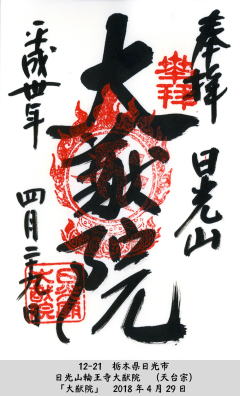 奉拝
日光山
大猷院
平成卅年
四月二十九日
奉拝
日光山
大猷院
12-21 栃木県日光市
日光山輪王寺大猷院 (天台宗)
「大猷院」 2018年4月29日